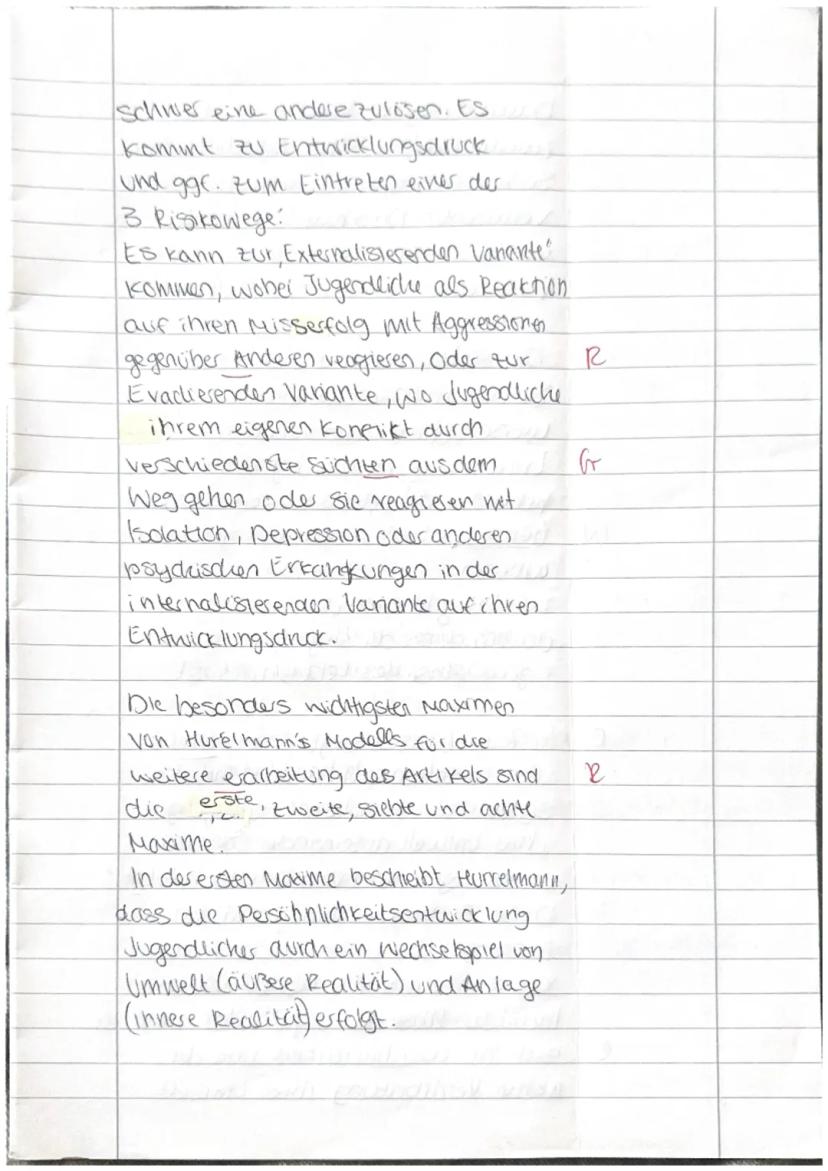 schwer eine andere zulösen. Es
kommt zu Entwicklungsdruck
und ggf. zum Eintreten einer der
3 Risikowege:
Es kann zur „Externalisierenden Variante"
kommen, wobei Jugendliche als Reaktion
auf ihren Misserfolg mit Aggressionen
gegenüber Anderen reagieren, Oder zur R
Evadierenden Variante, wo Jugendliche
ihrem eigenen Konflikt durch
verschiedenste Süchten aus dem Gr
Weg gehen oder sie reagieren mit
Isolation, Depression oder anderen
psychischen Erkankungen in der
internalisierenden Variante auf ihren
Entwicklungsdruck.
Die besonders wichtigsten Maximen
von Hurelmann's Modells für die
weitere erarbeitung des Artikels sind R
die erste, zweite, siebte und achte
Maxime.
In der ersten Maxime beschreibt Hurrelmann,
dass die Persöhnlichkeitsentwicklung
Jugendlicher durch ein Wechselspiel von
Umwelt (äußere Realität) und Anlage
(innere Realität) erfolgt.